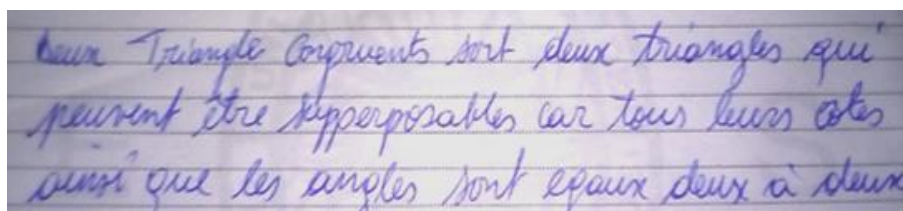 Deux Triangle Congruents sont deux triangles qui
peuvent être supperposables car tous leurs cotes
ainsi que les angles sont egaux deux à deux